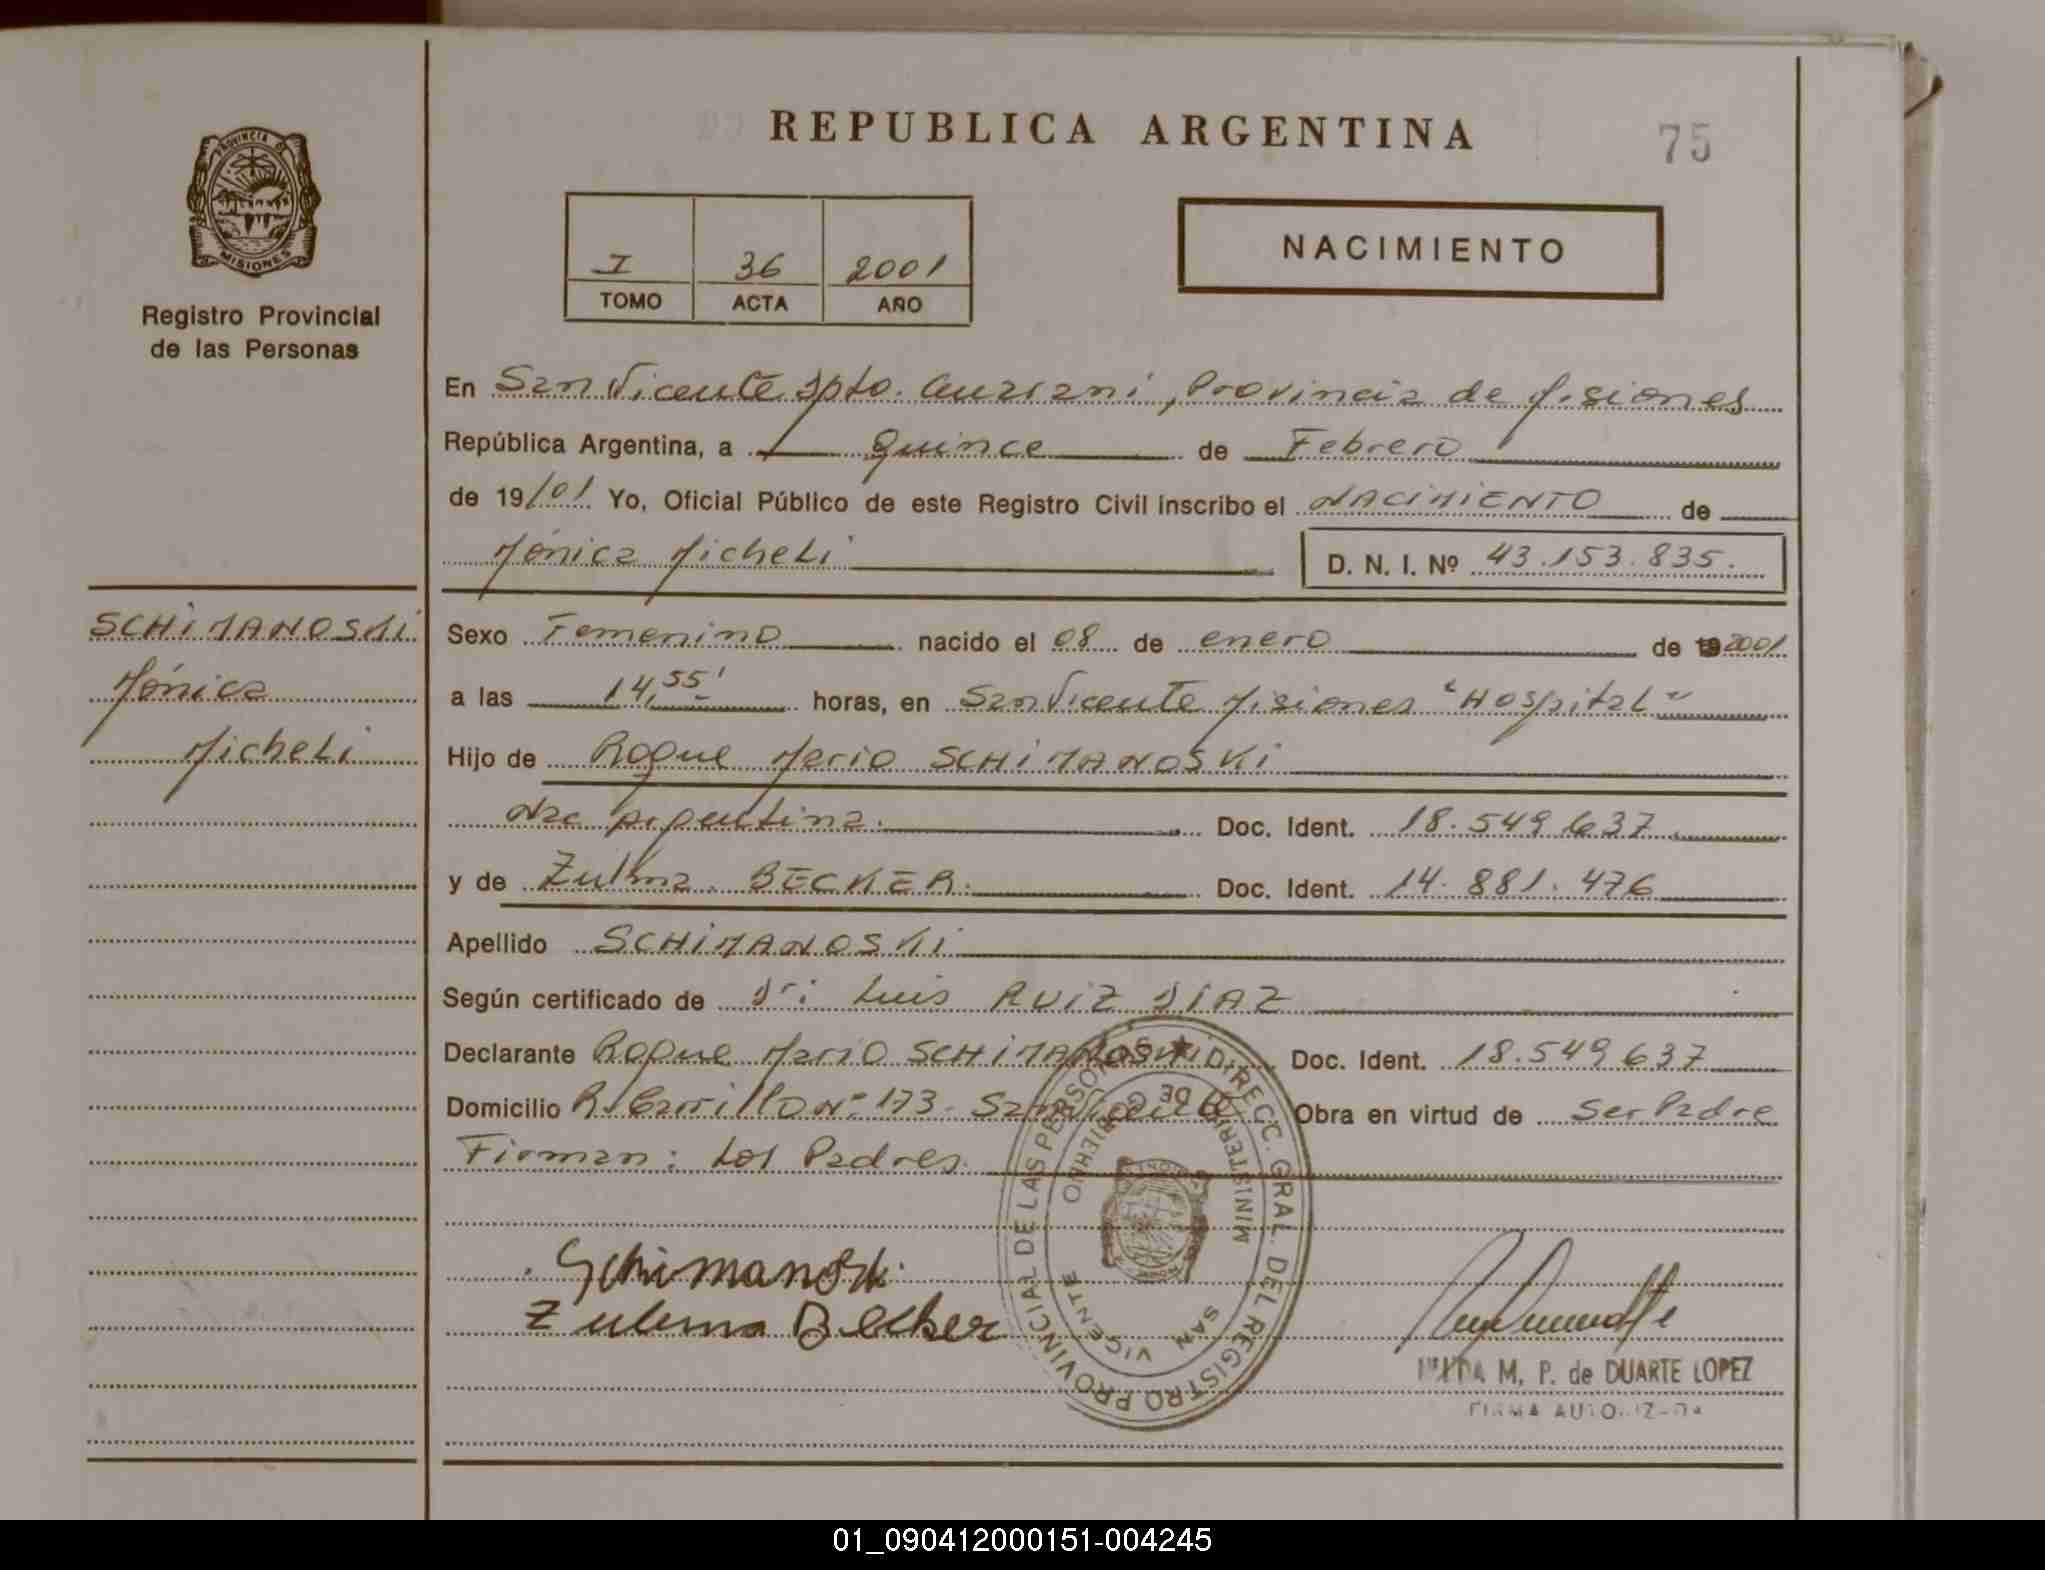 REPUBLICA ARGENTINA
75
PROVINCIA DE
MISIONES
Registro Provincial
de las Personas
I 36 2001
TOMO ACTA AÑO
NACIMIENTO
En San Vicente Dpto. Guaraní, Provincia de Misiones
República Argentina, a Quince de Febrero
de 19/01 Yo, Oficial Público de este Registro Civil inscribo el NACIMIENTO de
Mónica Micheli D. N. I. Nº 43.153.835.
SCHIMANOSKI
Mónica
Micheli
Sexo Femenino nacido el 08 de enero de 2001
a las 14,55' horas, en San Vicente Misiones "Hospital"
Hijo de Roque Mario SCHIMANOSKI
Nac Argentina. Doc. Ident. 18.549.637
y de Zulma BECKER. Doc. Ident. 14.881.476
Apellido SCHIMANOSKI
Según certificado de Dr: Luis RUIZ DIAZ
Declarante Roque Mario SCHIMANOSKI Doc. Ident. 18.549.637
Domicilio R. Carrillo Nº 173 - San Vicente Obra en virtud de Ser Padre
Firman: Los Padres.
DIRECC. GRAL. DEL REGISTRO PROVINCIAL DE LAS PERSONAS
MINISTERIO DE GOBIERNO
SAN VICENTE
Schimanoski
Zulema Becker
M. P. de DUARTE LOPEZ
FIRMA AUTORIZADA
01_090412000151-004245